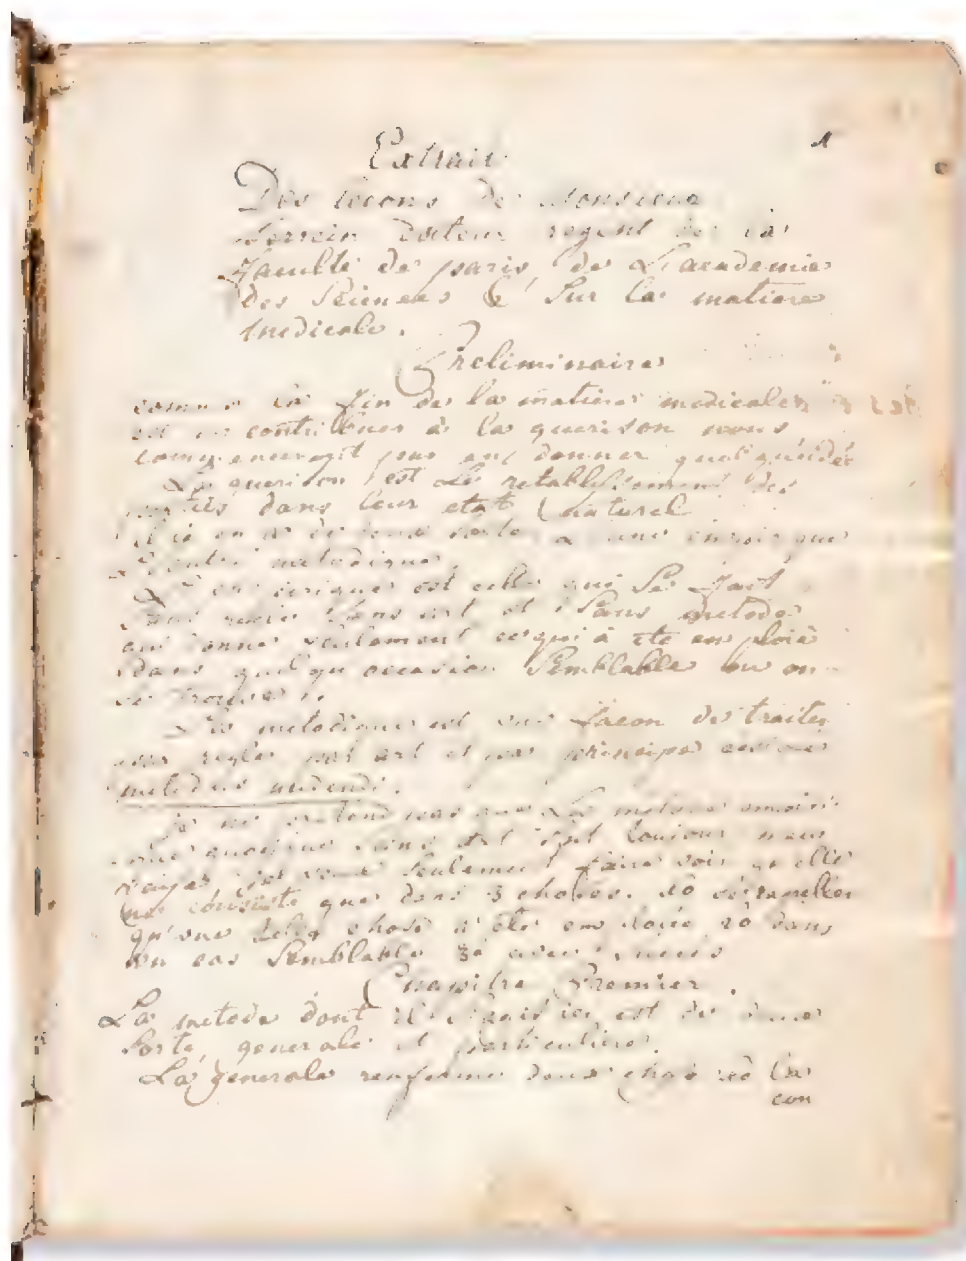 1
Extrait
Des lecons de Monsieur
ferrein docteur regent de la
faculté de paris, de L'academie
des Sciences & Sur la matiere
medicale.
Preliminaire
comme la fin de la matiere medicale
est de contribuer à la guerison nous
commencerons par en donner quelqu'idée
La guerison est Le retablissement des
parties dans leur etat naturel
il y en a de deux sorte, L'une empirique
L'autre metodique
L'empirique est celle qui se fait
sans art et Sans metode
qui donne seulement ce qui à eté emploié
dans quelqu'occasion Semblable ou on
se trouve
La metodique est une facon de traiter
par regles par art et par principe
metodus medendi.
je ne pretend pas que La metode
quoique sans art soit toujour
je veux seulement faire voir qu'elle
ne consiste que dans 3 choses. 1o
qu'une telle chose a eté emploiée 2o dans
un cas Semblable 3o avec succès
Chapitre Premier.
La metode dont il s'agit ici est de deux
sorte, generale et particuliere
La generale renferme deux choses 1o La
con